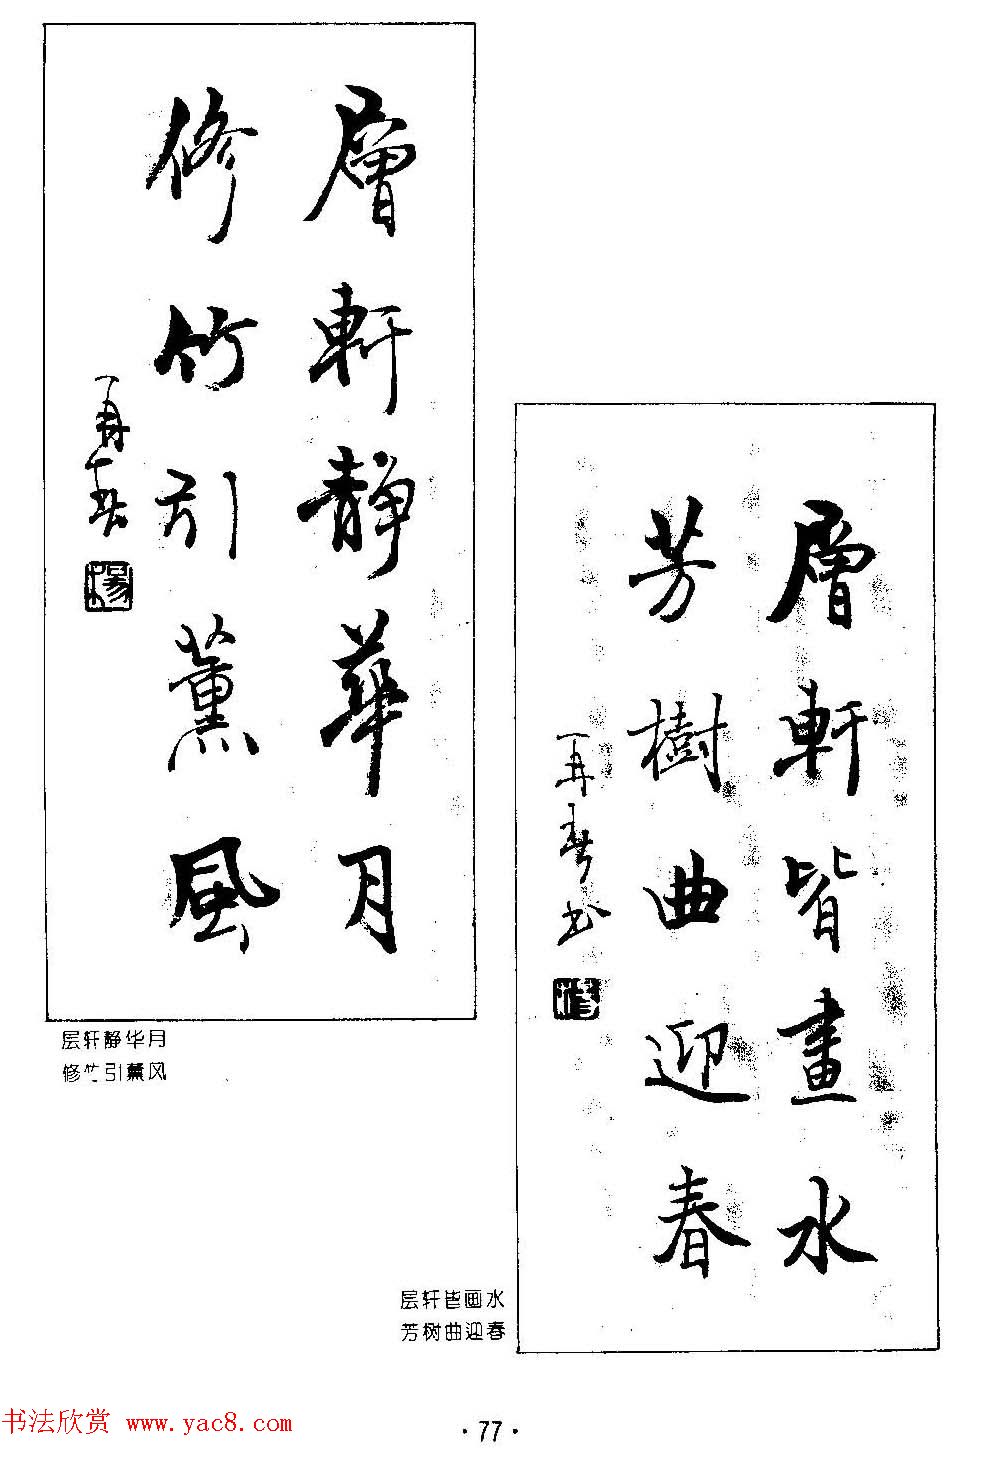 層軒静華月
修竹引薫風
再春
楊
层轩静华月
修竹引薰风
層軒皆畫水
芳樹曲迎春
再春书
层轩皆画水
芳树曲迎春
书法欣赏 www.yac8.com
·77·